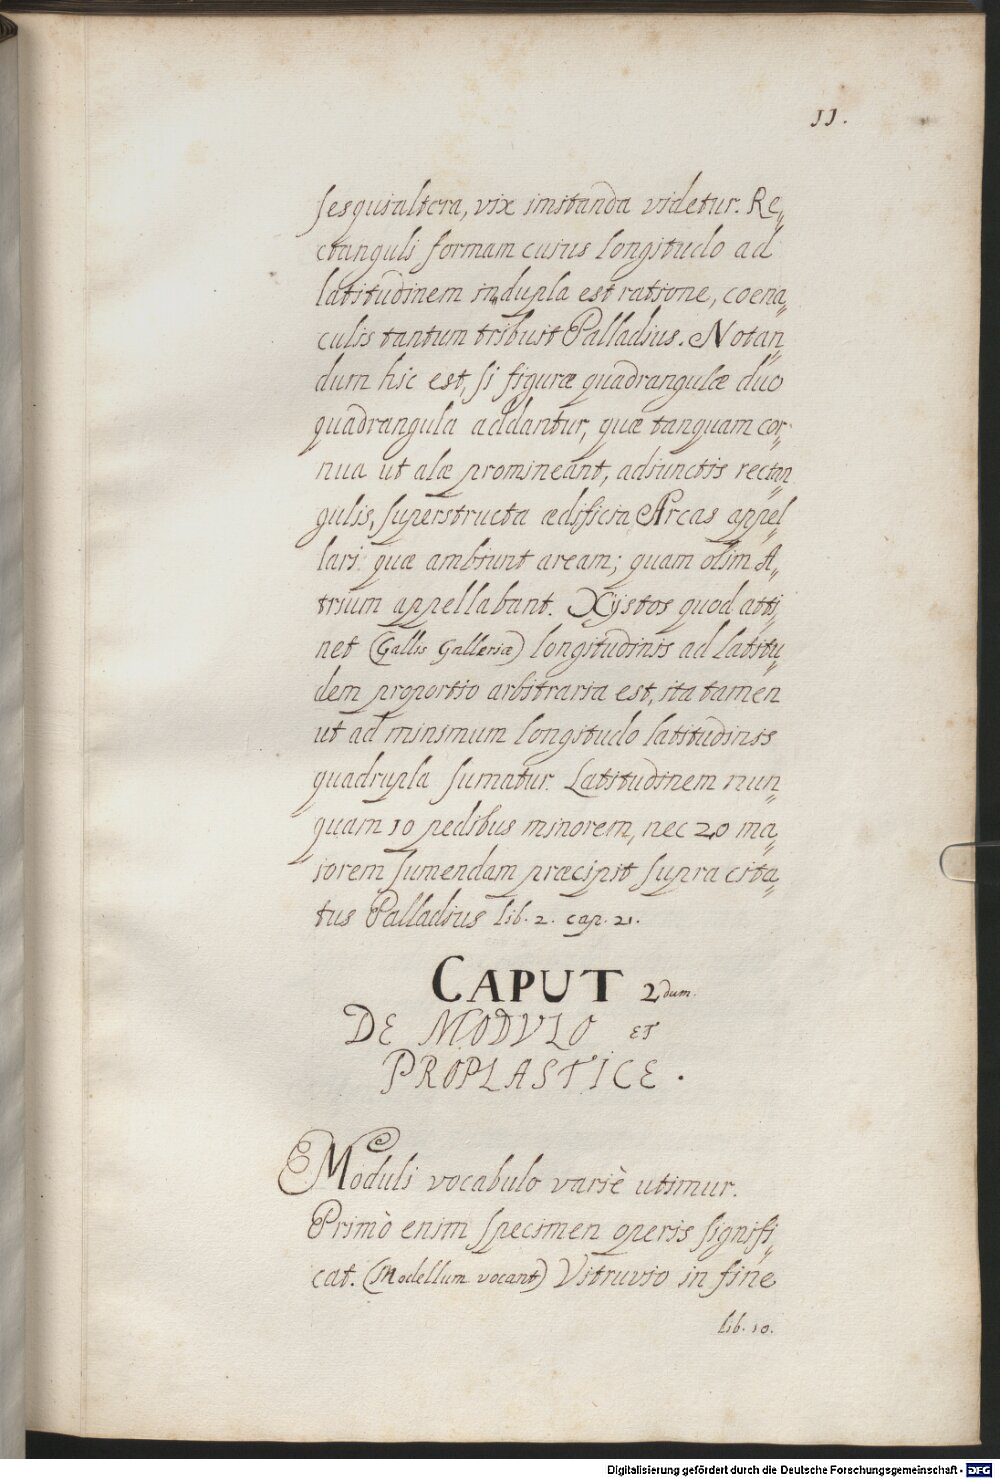 11.
sesquialtera, vix imitanda videtur. Re„
ctanguli formam cuius longitudo ad
latitudinem in dupla est ratione, coena„
culis tantum tribuit Palladius. Notan„
dum hic est, si figuræ quadrangulæ duo
quadrangula addantur, quæ tanquam cor„
nua ut alæ promineant, adiunctis rectan„
gulis, superstructa ædificia Arcas appel„
lari quæ ambiunt aream; quam olim A„
trium appellabant. Xystos quod atti„
net (Gallis Galleriæ) longitudinis ad latitu„
dem proportio arbitraria est, ita tamen
ut ad minimum longitudo latitudinis
quadrupla sumatur. Latitudinem nun„
quam 10 pedibus minorem, nec 20 ma„
iorem sumendam præcipit supra cita„
tus Palladius lib. 2. cap. 21.
CAPUT 2dum.
DE MODVLO ET
PROPLASTICE.
Moduli vocabulo variè utimur.
Primò enim specimen operis signifi„
cat. (Modellum vocant) Vitruvio in fine
lib. 10.
Digitalisierung gefördert durch die Deutsche Forschungsgemeinschaft - DFG